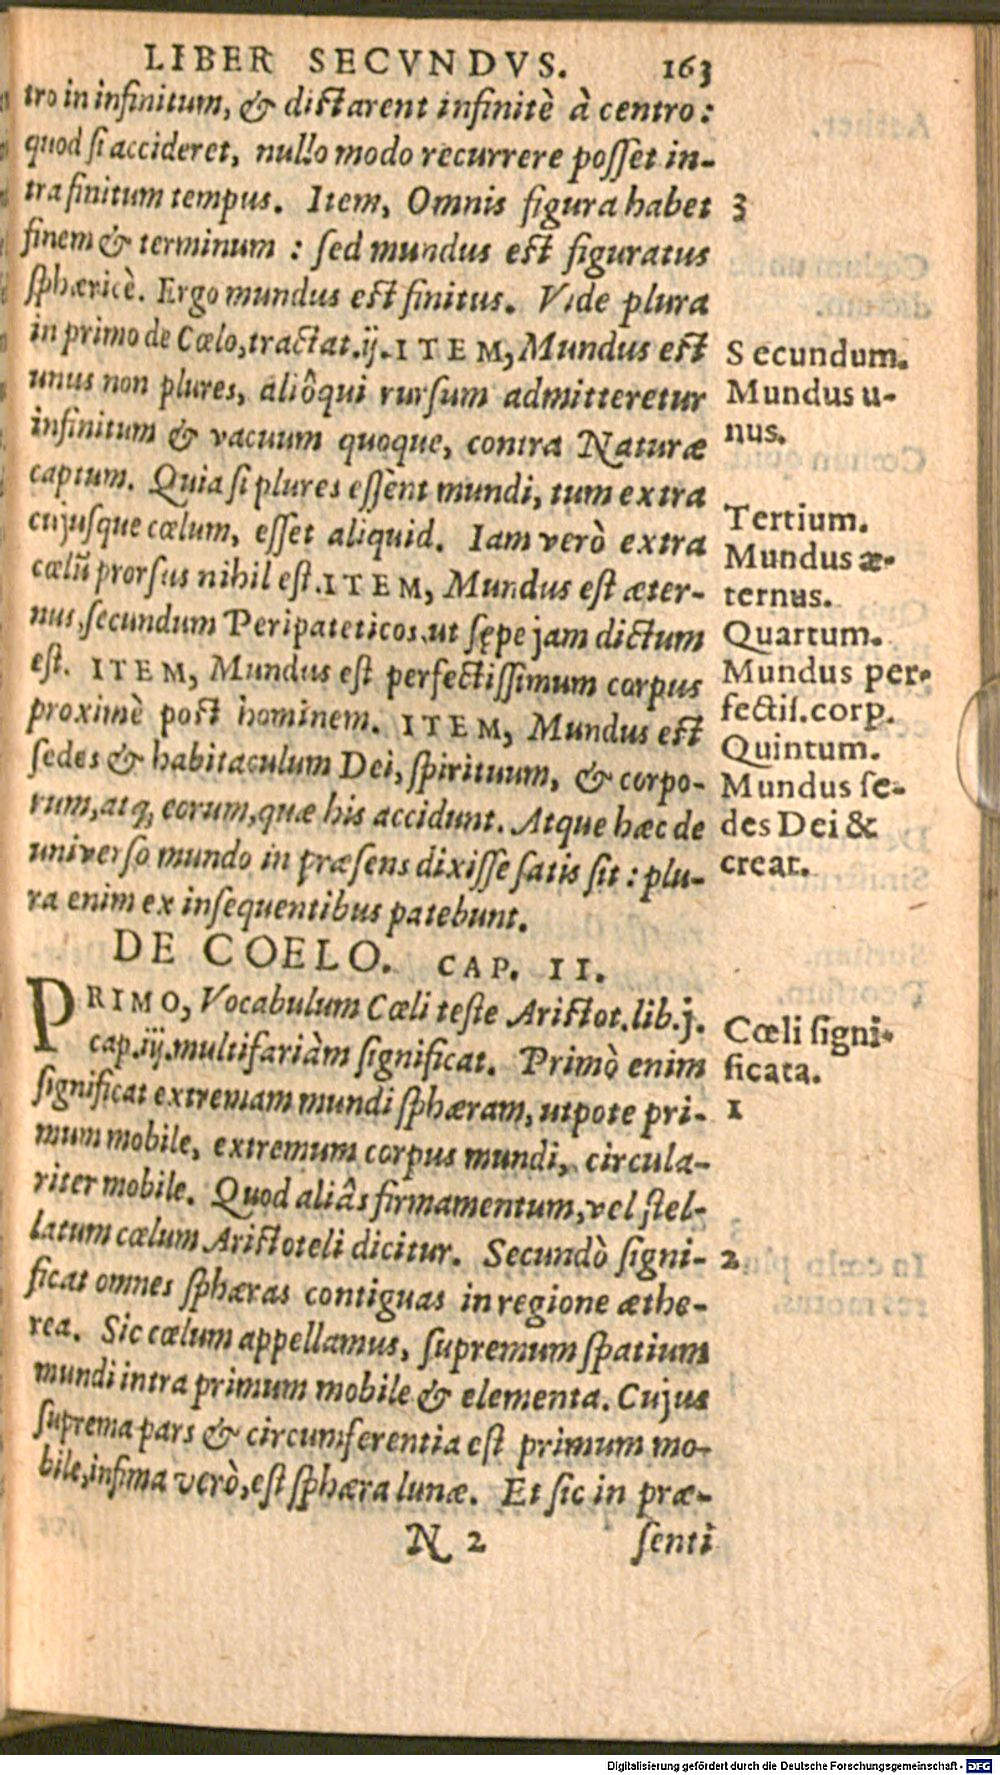 LIBER SECVNDVS. 163
tro in infinitum, & distarent infinitè à centro:
quod si accideret, nullo modo recurrere posset in-
tra finitum tempus. Item, Omnis figura habet
3
finem & terminum : sed mundus est figuratus
sphæricè. Ergo mundus est finitus. Vide plura
in primo de Cœlo, tractat. ij. ITEM, Mundus est
unus non plures, aliôqui rursum admitteretur
infinitum & vacuum quoque, contra Naturæ
captum. Quia si plures essent mundi, tum extra
cujusque cœlum, esset aliquid. Iam verò extra
cœlũ prorsus nihil est. ITEM, Mundus est æter-
nus, secundum Peripateticos, ut sępe jam dictum
est. ITEM, Mundus est perfectissimum corpus
proximè post hominem. ITEM, Mundus est
sedes & habitaculum Dei, spirituum, & corpo-
rum, atq; eorum, quæ his accidunt. Atque hæc de
universo mundo in præsens dixisse satis sit : plu-
ra enim ex insequentibus patebunt.
Secundum.
Mundus u-
nus.
Tertium.
Mundus æ-
ternus.
Quartum.
Mundus per-
fectis. corp.
Quintum.
Mundus se-
des Dei &
creat.
DE COELO. CAP. II.
PRIMO, Vocabulum Cœli teste Aristot. lib. j.
cap. iij. multifariàm significat. Primò enim
significat extremam mundi sphæram, utpote pri-
mum mobile, extremum corpus mundi, circula-
riter mobile. Quod aliâs firmamentum, vel stel-
latum cœlum Aristoteli dicitur. Secundò signi-
ficat omnes sphæras contiguas in regione æthe-
rea. Sic cœlum appellamus, supremum spatium
mundi intra primum mobile & elementa. Cujus
suprema pars & circumferentia est primum mo-
bile, infima verò, est sphæra lunæ. Et sic in præ-
Cœli signi-
ficata.
1
2
N 2 senti
Digitalisierung gefördert durch die Deutsche Forschungsgemeinschaft - DFG